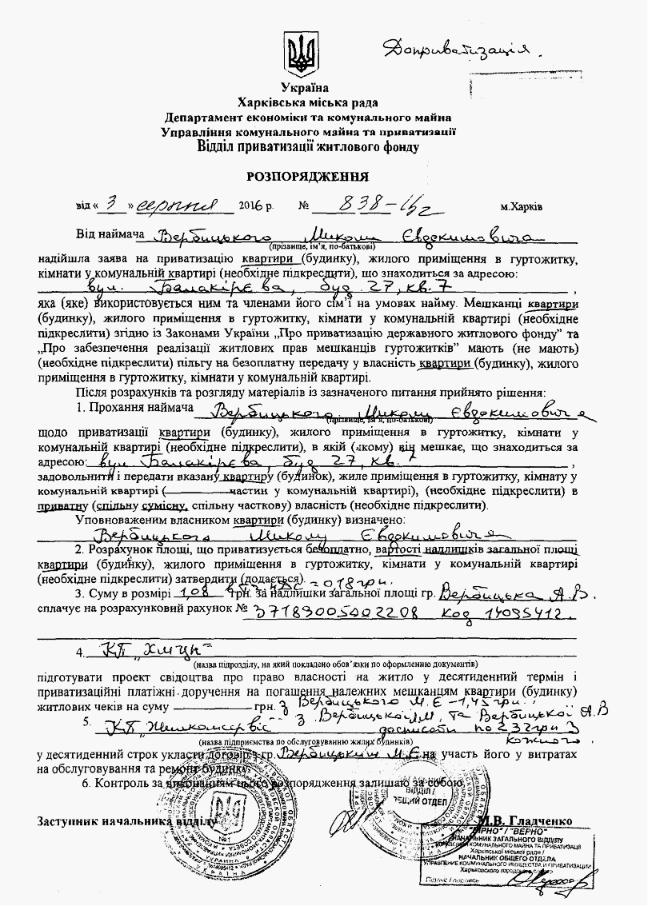 Доприватизація.
Україна
Харківська міська рада
Департамент економіки та комунального майна
Управління комунального майна та приватизації
Відділ приватизації житлового фонду
РОЗПОРЯДЖЕННЯ
від « 3 » серпня 2016 р. № 838-16/2 м.Харків
Від наймача Вербицького Миколи Євдокимовича
(прізвище, ім'я, по-батькові)
надійшла заява на приватизацію квартири (будинку), жилого приміщення в гуртожитку,
кімнати у комунальній квартирі (необхідне підкреслити), що знаходиться за адресою:
вул. Балакірєва, буд. 27, кв. 7 ,
яка (яке) використовується ним та членами його сім'ї на умовах найму. Мешканці квартири
(будинку), жилого приміщення в гуртожитку, кімнати у комунальній квартирі (необхідне
підкреслити) згідно із Законами України „Про приватизацію державного житлового фонду" та
„Про забезпечення реалізації житлових прав мешканців гуртожитків" мають (не мають)
(необхідне підкреслити) пільгу на безоплатну передачу у власність квартири (будинку), жилого
приміщення в гуртожитку, кімнати у комунальній квартирі.
Після розрахунків та розгляду матеріалів із зазначеного питання прийнято рішення:
1. Прохання наймача Вербицького Миколи Євдокимовича
(прізвище, ім'я, по-батькові)
щодо приватизації квартири (будинку), жилого приміщення в гуртожитку, кімнати у
комунальній квартирі (необхідне підкреслити), в якій (якому) він мешкає, що знаходиться за
адресою: вул. Балакірєва, буд 27, кв. 7 ,
задовольнити і передати вказану квартиру (будинок), жиле приміщення в гуртожитку, кімнату у
комунальній квартирі ( частин у комунальній квартирі), (необхідне підкреслити) в
приватну (спільну сумісну, спільну часткову) власність (необхідне підкреслити).
Уповноваженим власником квартири (будинку) визначено:
Вербицького Миколу Євдокимовича
2. Розрахунок площі, що приватизується безоплатно, вартості надлишків загальної площі
квартири (будинку), жилого приміщення в гуртожитку, кімнати у комунальній квартирі
(необхідне підкреслити) затвердити (додається). = 018 грн.
3. Суму в розмірі 1,08 грн. за надлишки загальної площі гр. Вербицька А.В.
сплачує на розрахунковий рахунок № 37183005002208 Код 14095412.
4. КП „Хмцн"
(назва підрозділу, на який покладено обов'язки по оформленню документів)
підготувати проект свідоцтва про право власності на житло у десятиденний термін і
приватизаційні платіжні доручення на погашення належних мешканцям квартири (будинку)
житлових чеків на суму грн. з Вербицького М.Є - 1,45 грн.
5. КП „Жилкомсервіс" з Вербицької М, та Вербицької А.В
дописати по 2 32 грн з
(назва підприємства по обслуговуванню жилих будинків) кожного.
у десятиденний строк укласти договір з гр. Вербицьким М.Є на участь його у витратах
на обслуговування та ремонт будинку.
6. Контроль за виконанням цього розпорядження залишаю за собою.
Заступник начальника відділу М.В. Гладченко
ВІДДІЛ /
ОБЩИЙ ОТДЕЛ
"ВІРНО" / "ВЕРНО"
НАЧАЛЬНИК ЗАГАЛЬНОГО ВІДДІЛУ
УПРАВЛІННЯ КОМУНАЛЬНОГО МАЙНА ТА ПРИВАТИЗАЦІЇ
Харківської міської ради /
НАЧАЛЬНИК ОБЩЕГО ОТДЕЛА
УПРАВЛЕНИЕ КОММУНАЛЬНОГО ИМУЩЕСТВА И ПРИВАТИЗАЦИИ
Харьковского городского совета
Підпис / подпись